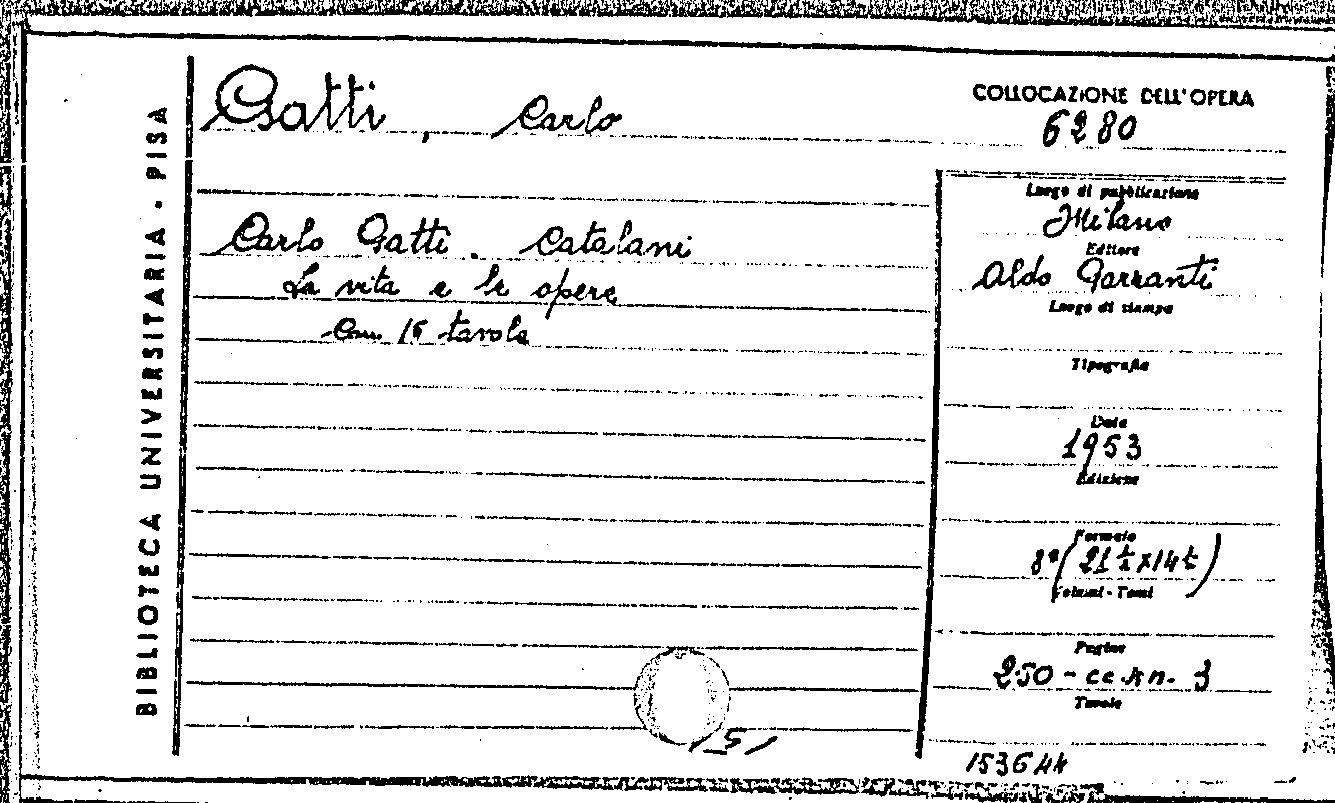 BIBLIOTECA UNIVERSITARIA - PISA
Gatti, Carlo
Carlo Gatti. Catalani
La vita e le opere
Con 16 tavole
COLLOCAZIONE DELL'OPERA
6280
Luogo di pubblicazione
Milano
Editore
Aldo Garzanti
Luogo di stampa
Tipografia
Data
1953
Edizione
Formato
8° (21½ x 14½)
Volumi - Tomi
Pagine
250 - cc. nn. 3
Tavole
153644